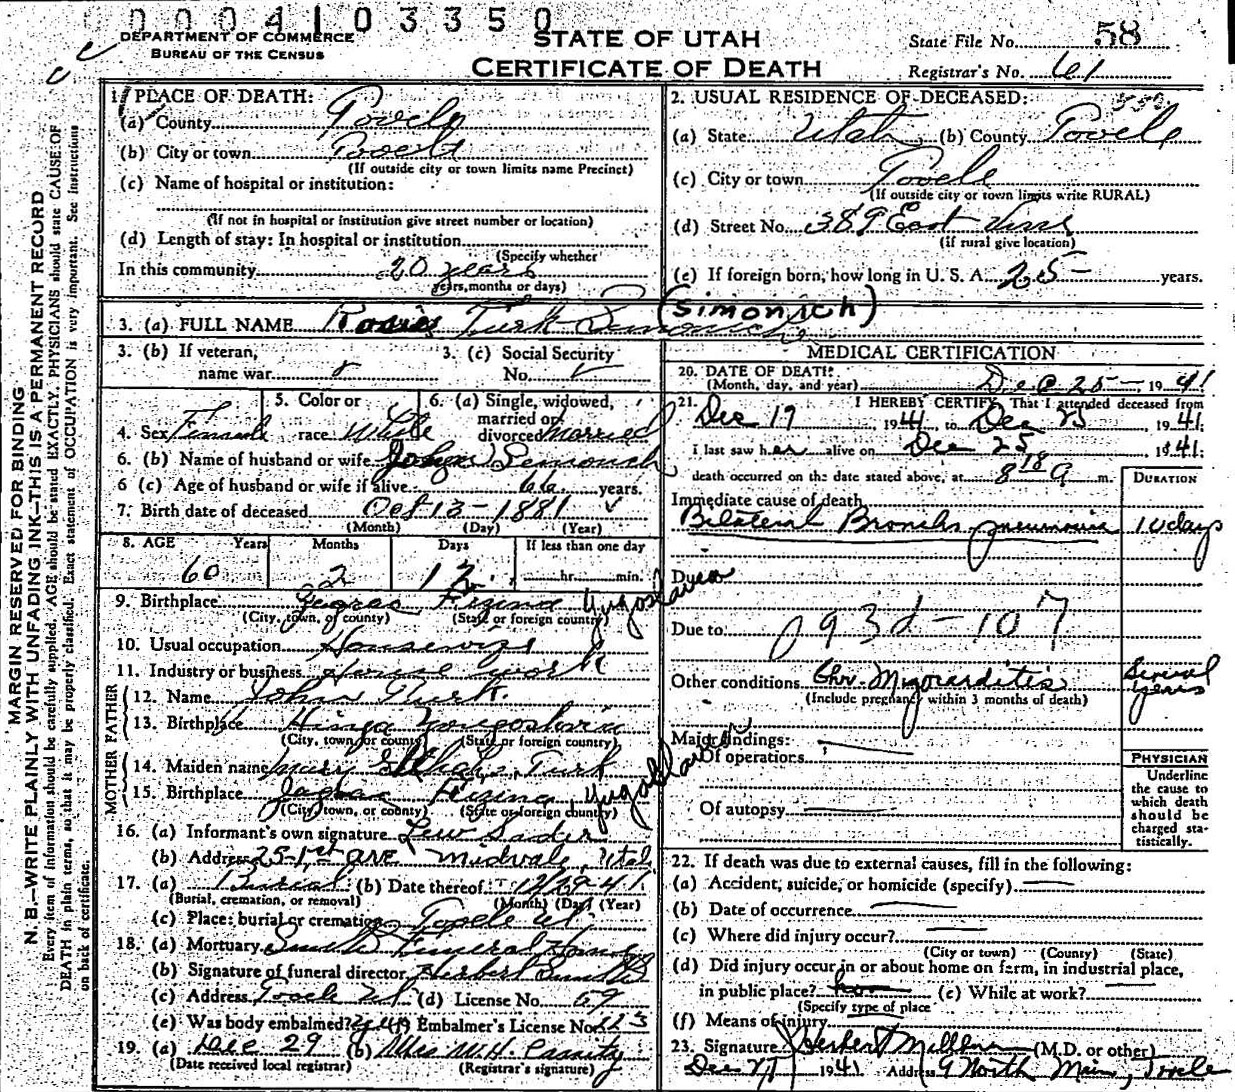 00041 03350
DEPARTMENT OF COMMERCE
BUREAU OF THE CENSUS
STATE OF UTAH
CERTIFICATE OF DEATH
State File No. 58
Registrar's No. 61
MARGIN RESERVED FOR BINDING
N. B.—WRITE PLAINLY WITH UNFADING INK—THIS IS A PERMANENT RECORD
Every item of information should be carefully supplied. AGE should be stated EXACTLY. PHYSICIANS should state CAUSE OF
DEATH in plain terms, so that it may be properly classified. Exact statement of OCCUPATION is very important. See Instructions
on back of certificate.
1. PLACE OF DEATH:
(a) County Tooele
(b) City or town Tooele
(If outside city or town limits name Precinct)
(c) Name of hospital or institution:
(If not in hospital or institution give street number or location)
(d) Length of stay: In hospital or institution
(Specify whether
In this community 20 years
years, months or days)
2. USUAL RESIDENCE OF DECEASED:
(a) State Utah (b) County Tooele
(c) City or town Tooele
(If outside city or town limits write RURAL)
(d) Street No. 389 East Vine
(If rural give location)
(e) If foreign born, how long in U. S. A. 25 years.
3. (a) FULL NAME Rosie Turk Semonich (Simonich)
3. (b) If veteran,
name war
3. (c) Social Security
No.
4. Sex Female
5. Color or
race White
6. (a) Single, widowed,
married or
divorced Married
6. (b) Name of husband or wife Semonich
6 (c) Age of husband or wife if alive 66 years.
7. Birth date of deceased Oct 13 - 1881
(Month) (Day) (Year)
8. AGE Years Months Days If less than one day
60 2 12 hr. min.
9. Birthplace Yugoslavia
(City, town, or county) (State or foreign country)
10. Usual occupation Housewife
11. Industry or business House work
FATHER
12. Name John Turk
13. Birthplace
(City, town, or county) (State or foreign country)
MOTHER
14. Maiden name Mary Turk
15. Birthplace Yugoslavia
(City, town, or county) (State or foreign country)
16. (a) Informant's own signature
(b) Address 25-1st ave Midvale, Utah
17. (a) Burial (b) Date thereof 12/29-41
(Burial, cremation, or removal) (Month) (Day) (Year)
(c) Place: burial or cremation Tooele Ut.
18. (a) Mortuary Funeral Home
(b) Signature of funeral director Herbert
(c) Address Tooele Ut. (d) License No. 69
(e) Was body embalmed? yes (f) Embalmer's License No. 223
19. (a) Dec 29 (b) Mrs W.H. Cassity
(Date received local registrar) (Registrar's signature)
MEDICAL CERTIFICATION
20. DATE OF DEATH:
(Month, day, and year) Dec 25 - 1941
21. I HEREBY CERTIFY, That I attended deceased from
Dec 19 1941, to Dec 25 1941
I last saw her alive on Dec 25 1941
death occurred on the date stated above, at 8 18 a m.
DURATION
Immediate cause of death
Bilateral Broncho pneumonia 10 days
Due to
Due to 93d - 107
Other conditions Chr. Myocarditis Several years
(Include pregnancy within 3 months of death)
Major findings:
Of operations
Of autopsy
PHYSICIAN
Underline
the cause to
which death
should be
charged sta-
tistically.
22. If death was due to external causes, fill in the following:
(a) Accident, suicide, or homicide (specify)
(b) Date of occurrence
(c) Where did injury occur?
(City or town) (County) (State)
(d) Did injury occur in or about home on farm, in industrial place,
in public place? (e) While at work?
(Specify type of place
(f) Means of injury
23. Signature Herbert Milburn (M.D. or other)
Dec 27 1941 Address 9 North Main, Tooele